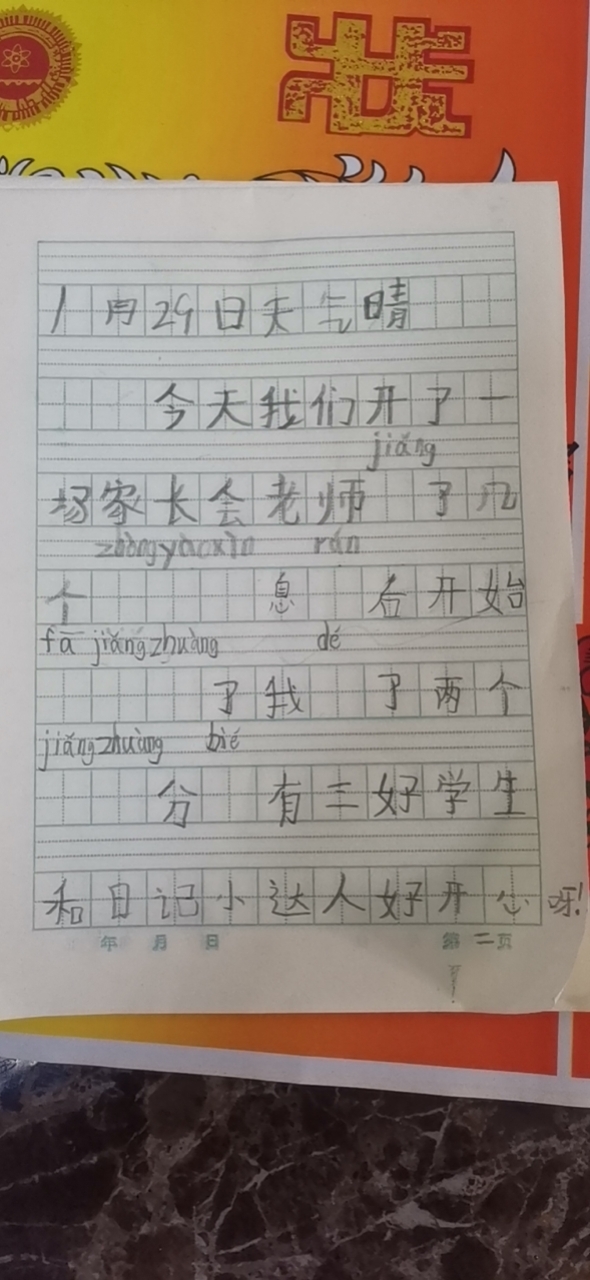 状
1月29日天气晴
今天我们开了一
jiǎng
场家长会老师 了几
zhòngyàoxìn rán
个 息 后开始
fā jiǎngzhuàng dé
了我 了两个
jiǎngzhuàng bié
分 有三好学生
和日记小达人好开心呀!
年 月 日 第二页